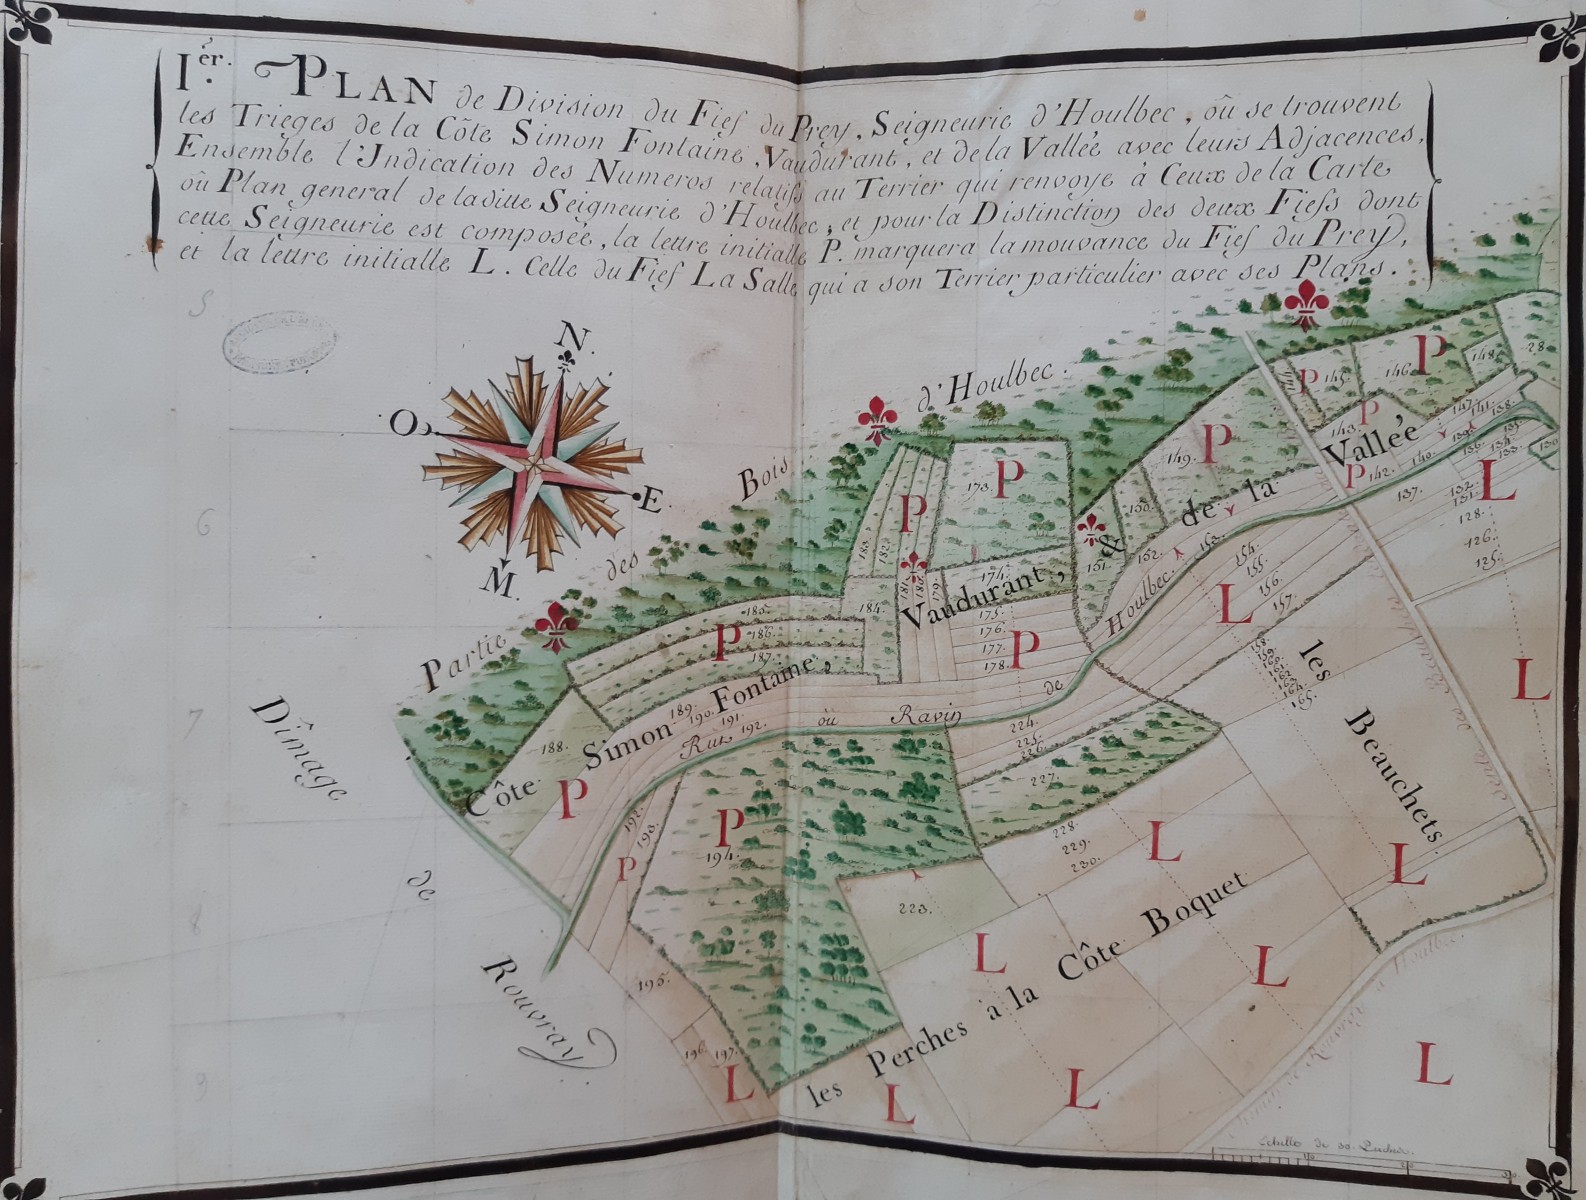 I.er PLAN de Division du Fief du Prey, Seigneurie d'Houlbec, où se trouvent
les Trieges de la Côte Simon Fontaine, Vaudurant, et de la Vallée avec leurs Adjacences,
Ensemble l'Indication des Numeros relatifs au Terrier qui renvoye à Ceux de la Carte
où Plan general de laditte Seigneurie d'Houlbec, et pour la Distinction des deux Fiefs dont
cette Seigneurie est composée, la lettre initialle P. marquera la mouvance du Fief du Prey,
et la lettre initialle L. Celle du Fief La Salle qui a son Terrier particulier avec ses Plans.
N.
O
E.
M.
5
6
7
8
9
Partie des Bois d'Houlbec.
Côte Simon Fontaine, Vaudurant, & de la Vallée
Rut où Ravin de Houlbec.
Dîmage de Rouvray.
les Beauchets.
les Perches à la Côte Boquet
P
P
P
P
P
P
P
P
P
P
P
P
L
L
L
L
L
L
L
L
L
L
L
28
145.
146.
148.
147.
141.
138.
143.
149.
142.
140.
139.
136.
135.
134.
133.
130
137.
132.
131.
128.
126.
125.
150.
151.
152.
153.
154.
155.
156.
157.
158.
159.
165.
173.
174.
175.
176.
177.
178.
179.
180.
181.
182.
183.
184.
185.
186.
187.
188.
189.
190.
191.
192.
192.
193.
194.
195.
196.
197.
223.
224.
225.
226.
227.
228.
229.
230.
Houlbec.
Echelle de 30. Perches.